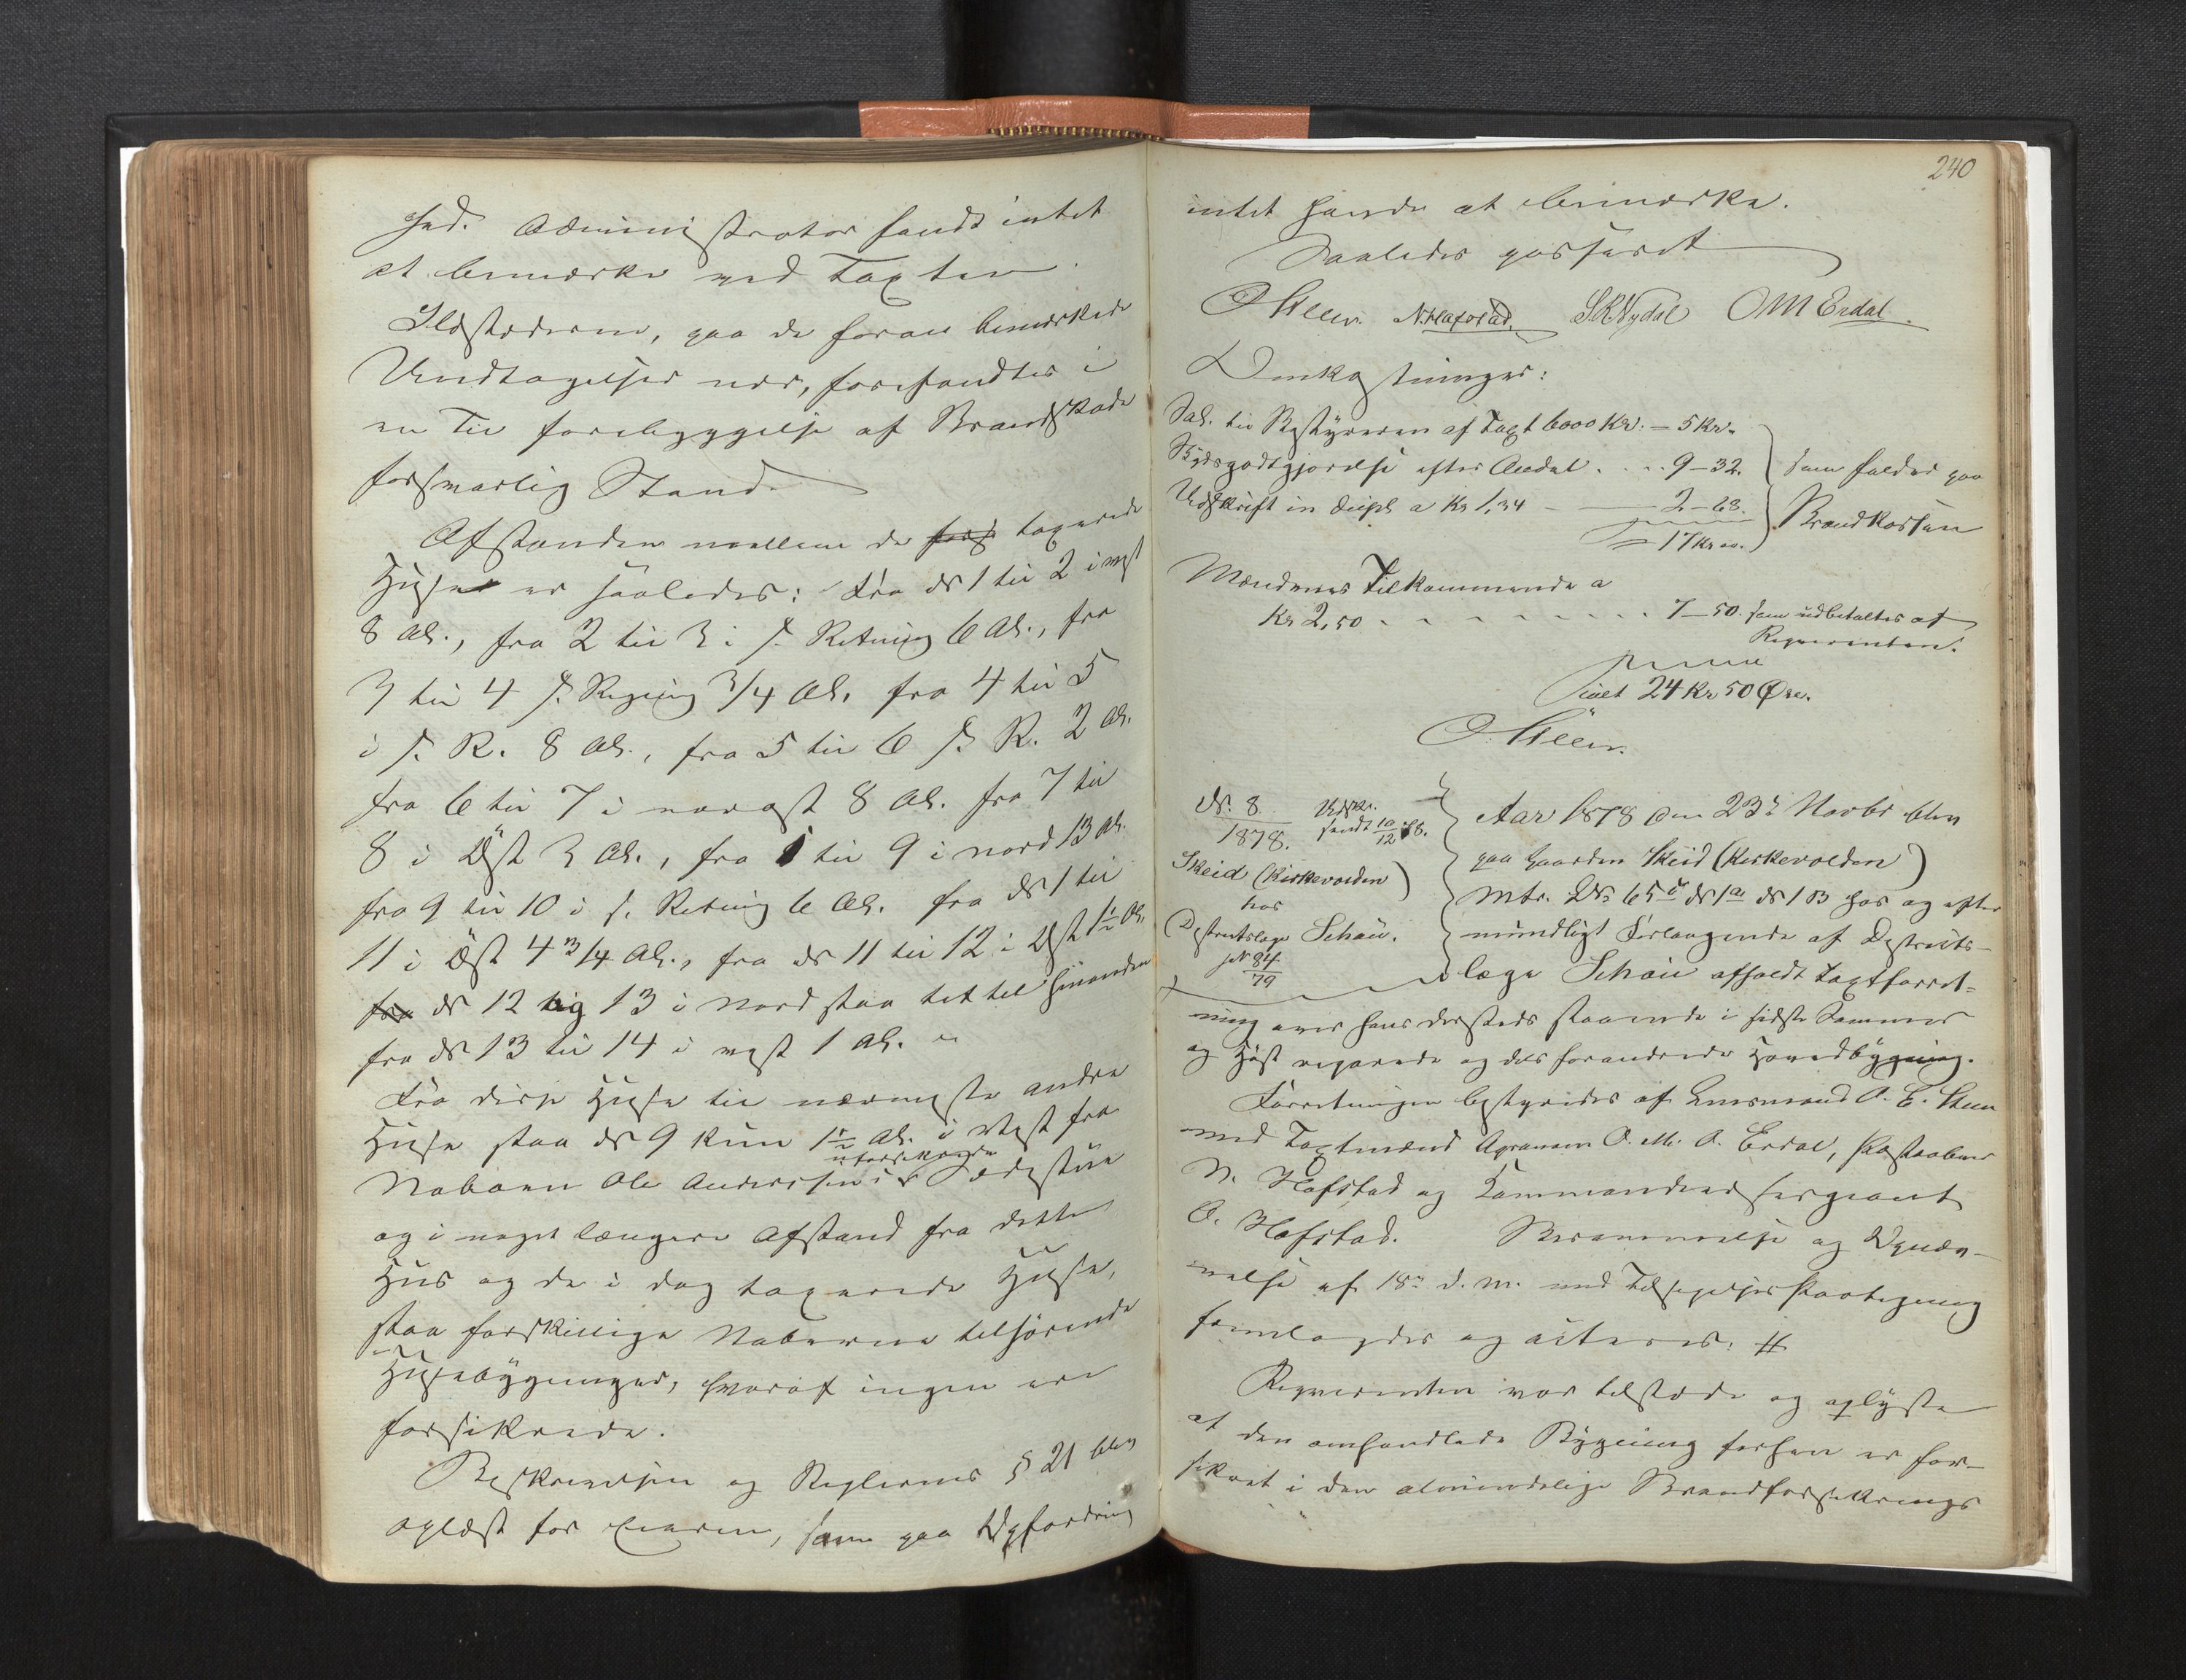 hed. Administrator fandt intet
at bemærke ved Taxten.
Ildstederne, paa de foran bemærkede
Undtagelser nær, forefandtes i
en til forebyggelse af Brandskade
forsvarlig Stand.
Afstanden mellem de taxerede
Huse er saaledes: Fra № 1 til 2 i vest
8 Al., fra 2 til 3 i s. Retning 6 Al., fra
3 til 4 s. Retning 3/4 Al. fra 4 til 5
i s. R. 8 Al., fra 5 til 6 s. R. 2 Al.
fra 6 til 7 i 8 Al. fra 7 til
8 i Øst 3 Al., fra 1 til 9 i nord 13 Al.
fra 9 til 10 i s. Retning 6 Al. fra № 1 til
11 i Øst 4 3/4 Al., fra № 11 til 12 i Øst 1½ Al.
fra № 12 og 13 i Nord staa tet til hinanden
fra № 13 til 14 i vest 1 Al.
Fra disse Huse til nærmeste andre
Huse staa № 9 kun 1½ Al. i Vest fra
uforsikrede
Naboen Ole Anderssens
og i noget længere Afstand fra dette
Hus og de i dag taxerede Huse,
staa forskjellige Naboerne tilhørende
Husebygninger, hvoraf ingen ere
forsikrede.
Beskrivelsen og Reglernes § 21 blev
oplæst for Eieren, som paa Opfordring
240
intet havde at bemærke.
Saaledes passeret
O Steen. N. Hafstad S K Nydal O M Erdal
Omkostninger:
Sal. til Bestyreren af Taxt 6000 Kr. – 5 Kr.
Skydsgodtgjørelse efter Audal . . . 9–32.
Udskrift in dupl. a Kr 1,34 – 2–68.
= 17 Kr
som falder paa
Brandkassen
Mændenes Tilkommende a
Kr 2,50 . . . . . . . . 7–50. som udbetaltes af
Reqvirenten.
ialt 24 Kr 50 Øre.
O. Steen.
№ 8
1878.
Udskr.
sendt 10/12 78.
Skeid (Kirkevolden)
hos
Distriktslæge Schou.
JN 84
79
Aar 1878 den 23de Novbr blev
paa Gaarden Skeid (Kirkevolden)
Mtr. № 65 № 1a № 103 hos og efter
mundtligt Forlangende af Distrikts-
læge Schou afholdt Taxtforret-
ning over hans dersteds staaende i sidste Sommer
og Høst reparerede og dels forandrede Hovedbygning.
Forretningen bestyrides af Lensmand O. E. Steen
med Taxtmænd Agronom O. M. A. Erdal, Postaabner
N. Hafstad og Kommandeersergeant
O. Hafstad. Berammelse og Opnæv-
nelse af 18de d. M. med Tilsigelsespaategning
fremlagdes og acteres. #
Reqvirenten var tilstede og oplyste
at den omhandlede Bygning forhen er for-
sikret i den almindelige Brandforsikrings